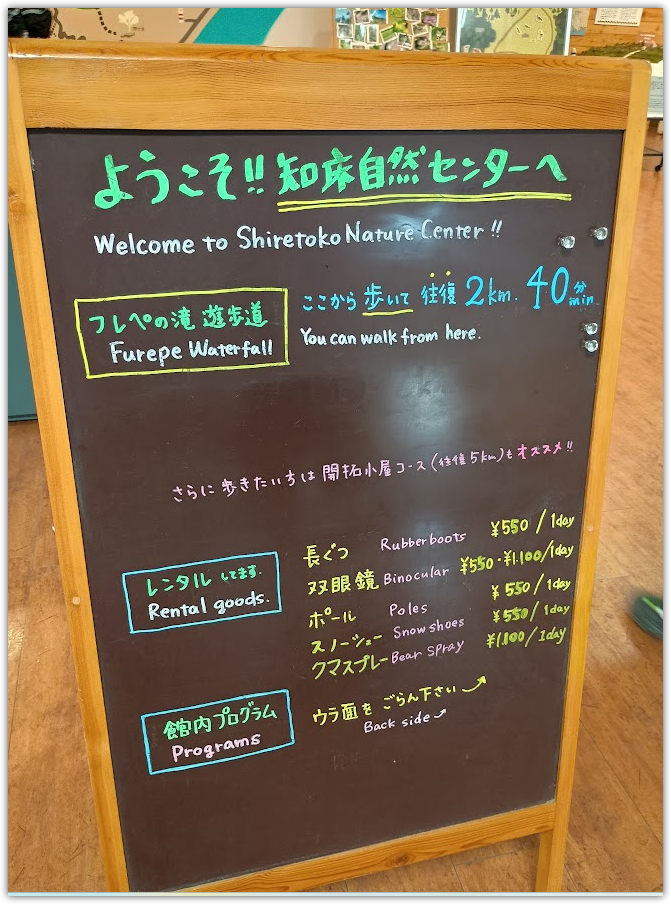 ようこそ!! 知床自然センターへ
Welcome to Shiretoko Nature Center !!
フレペの滝 遊歩道
Furepe Waterfall
ここから 歩いて 往復 2km. 40分 min.
You can walk from here.
さらに 歩きたい方は 開拓小屋コース (往復 5km) も オススメ!!
レンタル してます.
Rental goods.
長ぐつ Rubber boots ¥550 / 1day
双眼鏡 Binocular ¥550・¥1.100/1day
ポール Poles ¥550 / 1day
スノーシュー Snow shoes ¥550 / 1day
クマスプレー Bear Spray ¥1.100 / 1day
館内プログラム
Programs
ウラ面を ごらん下さい
Back side